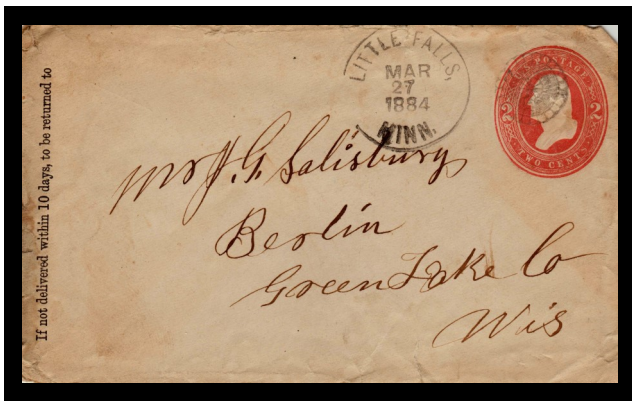 If not delivered within 10 days, to be returned to
LITTLE FALLS,
MAR
27
1884
MINN.
U.S. POSTAGE
2 2
TWO CENTS
Mrs J. G. Salisbury
Berlin
Green Lake Co
Wis